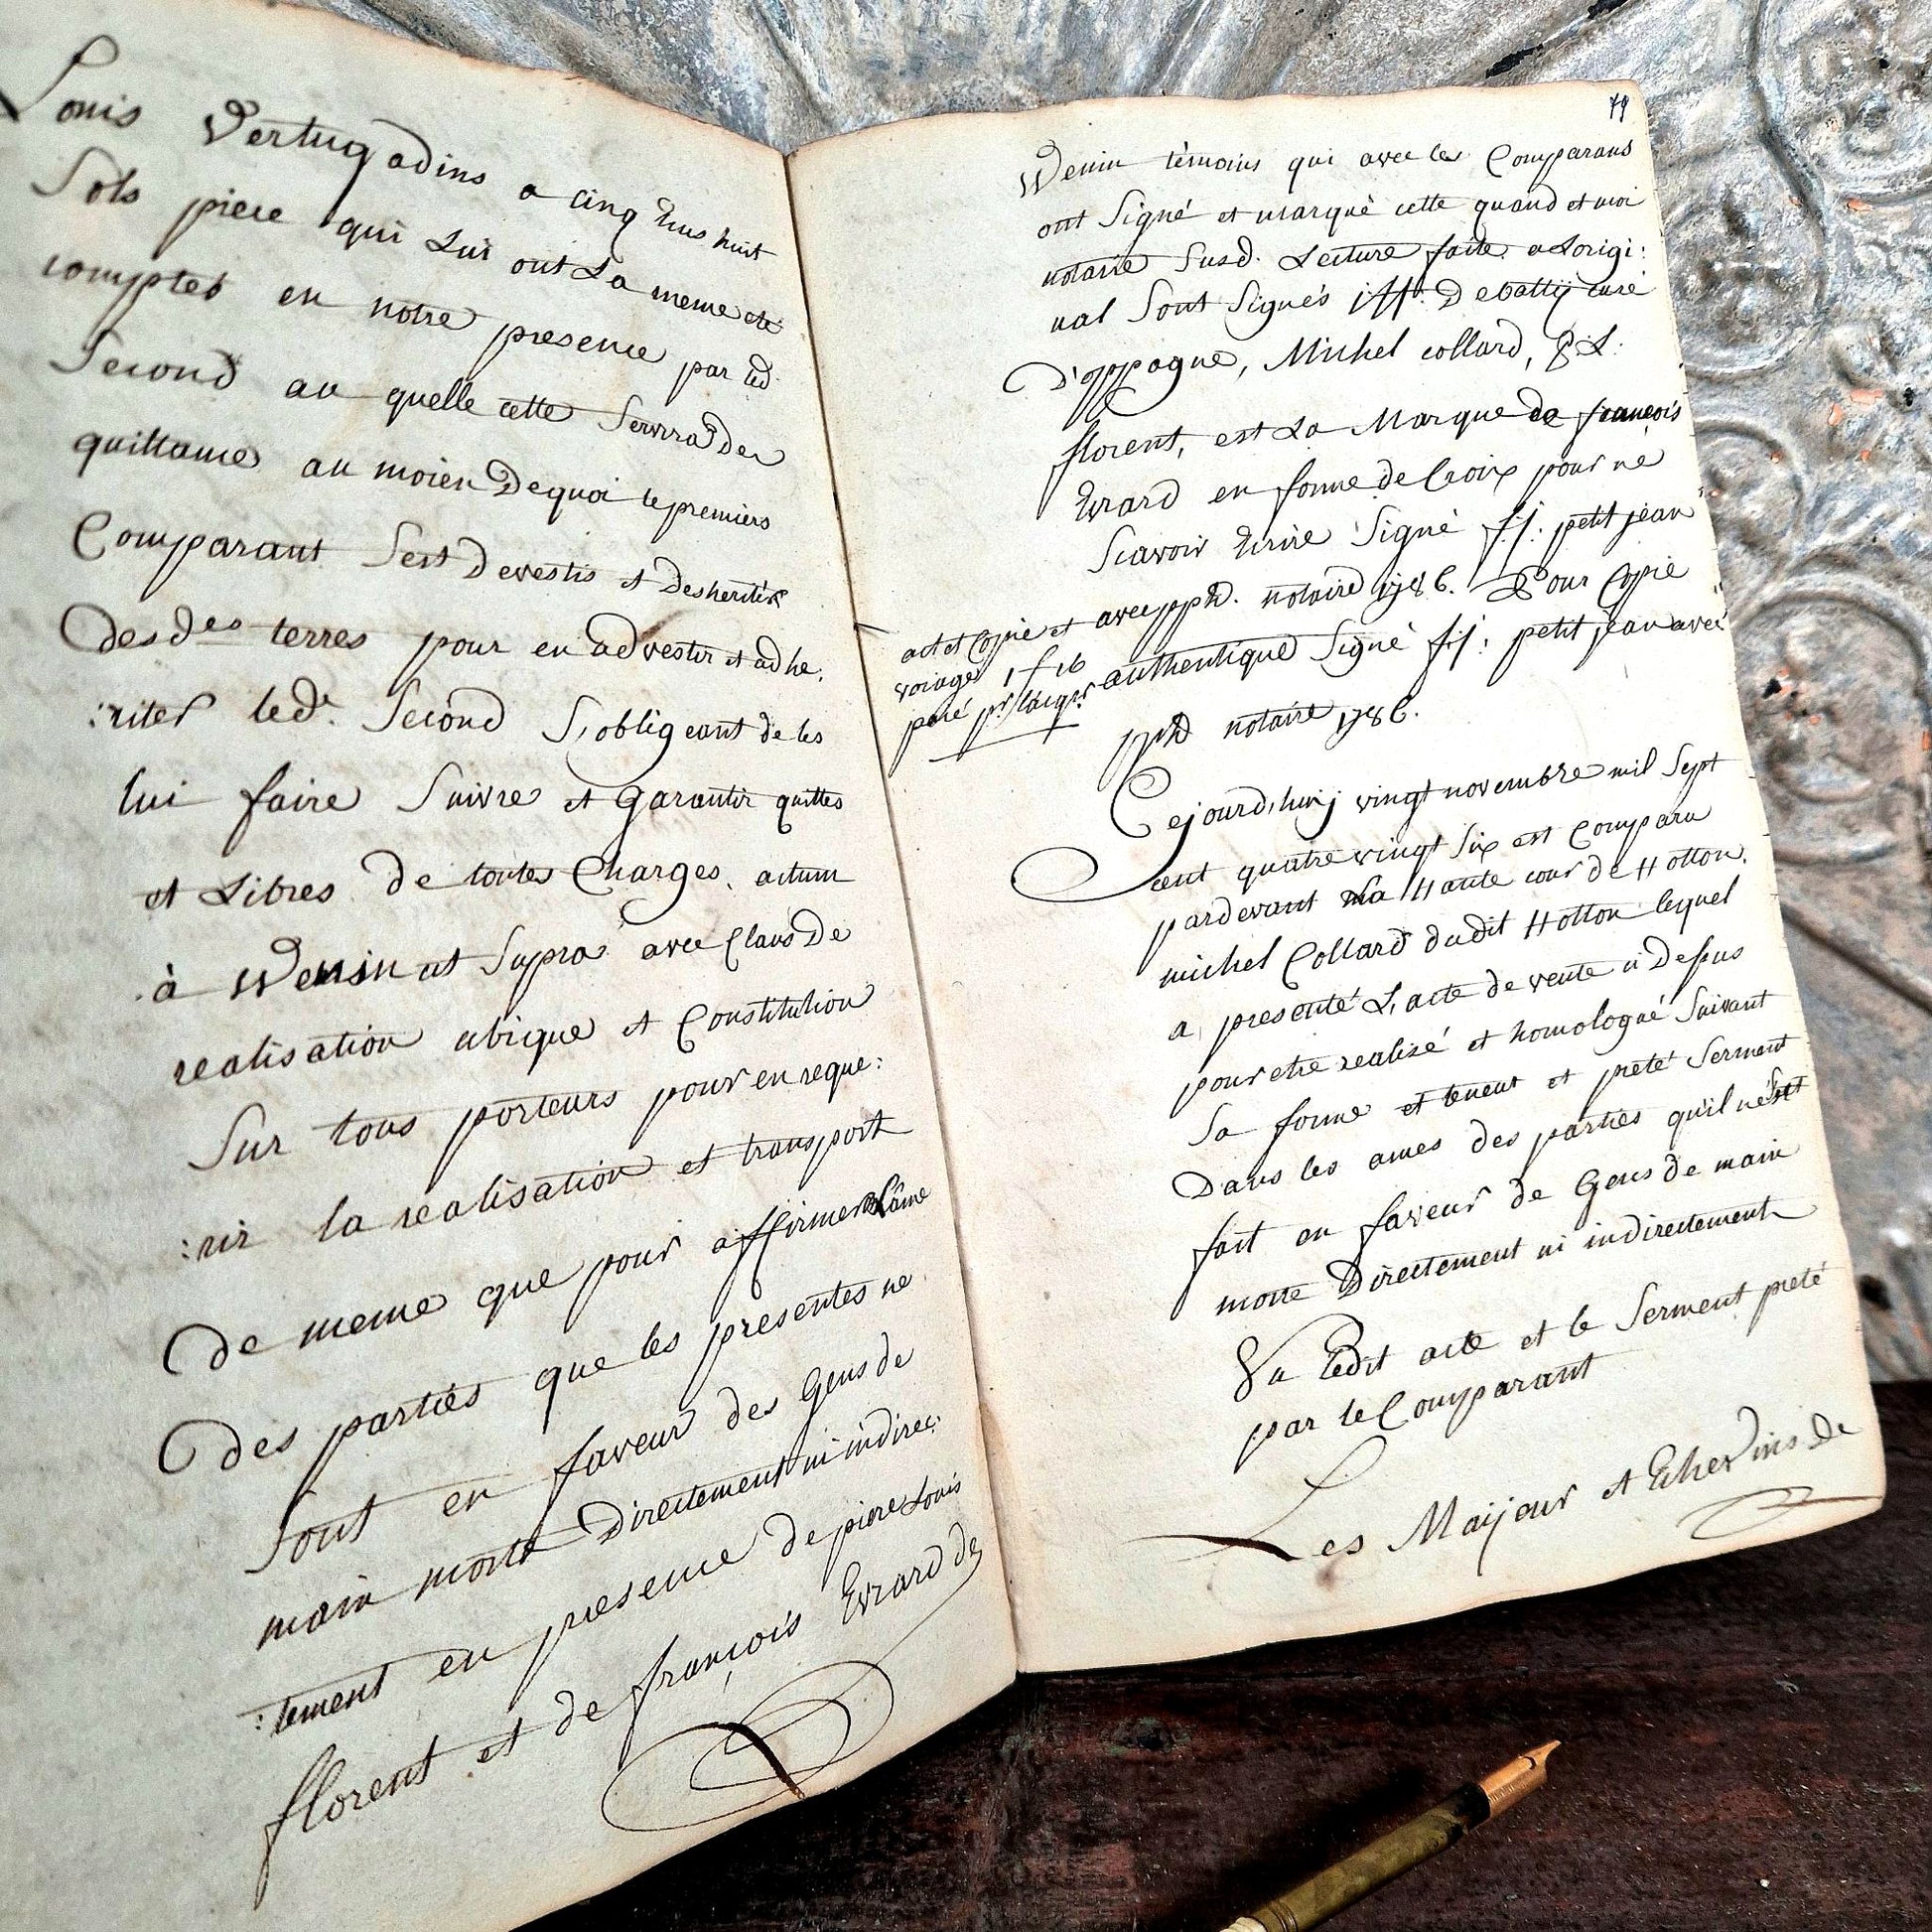 Louis Vertugadins a cinq Ecus huit
Sols piece qui Lui ont La meme eté
comptes en notre presence par led.
Second au quelle cette Servira de
quittance au moien Dequoi le premiers
Comparant Sest Devestis et Desherités
des des terres pour en advestir et adhe:
:riter led. Second S'obligeant de les
lui faire Suivre et Garantir quittes
et Libres de toutes Charges. actum
à Wenin ut Supra avec Claus De
realisation ubique et Constitution
Sur tous porteurs pour en reque:
:rir la realisation et transport
De meme que pour affirmer L'âme
Des partiés que les presentes ne
Sont en faveur des Gens de
main morte Directement ni indirec:
:tement en presence de piere Louis
florent et de françois Evrard de
79
Wenin témoins qui avec les Comparans
ont Signé et marqué cette quand et moi
notaire Susd. Lecture faite a Lorigi:
nal Sont Signés Debatty curé
D'oppagne, Michel collard, P L:
florent, est La Marque de francois
Evrard en forme de Croix pour ne
Scavoir Ecrire Signé f.j. petit jean
avec pphe. notaire 1786. Pour Copie
authentique Signé f.j: petit jean avec
pphe notaire 1786.
act et Copie et
voiage 1 f 16
paié pr l'acqr.
Cejourd,huij vingt novembre mil Sept
cent quatre vingt Six est Comparu
pardevant La Haute cour de Hotton.
michel Collard dudit Hotton lequel
a presenté L,acte de vente ci Desus
pour etre realisé et homologué Suivant
Sa forme et teneur et preté Serment
Dans les ames des partiés qu'il nest
fait en faveur de Gens de main
morte Directement ni indirectement
Vu Ledit acte et le Serment preté
par le Comparant
Les Maijeur et Echevins de